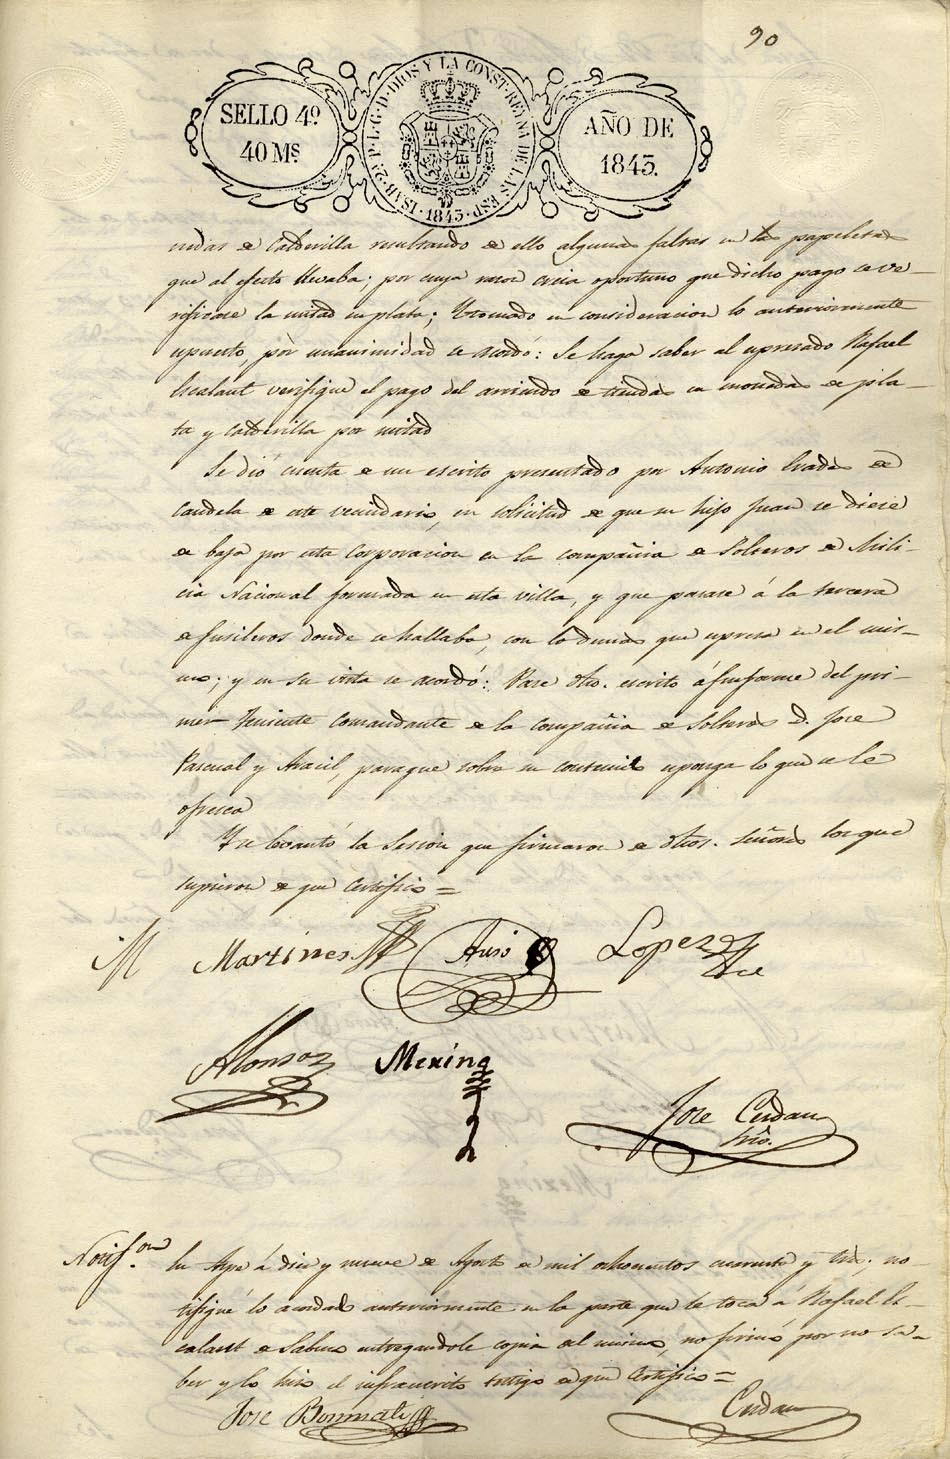 90
SELLO 4º
40 Ms.
ISAB. 2ª P. L. G. D. DIOS Y LA CONST. REYNA DE LAS ESP. 1843.
AÑO DE
1843.
nedas de Calderilla resultando de ello algunas faltas en las papeletas
que al efecto llevaba; por cuya razon creia oportuno que dicho pago se ve-
rificase la mitad en plata; Y tomado en consideracion lo anteriormente
espuesto, por unanimidad se acordó: Se haga saber al espresado Rafael
Escalant verifique el pago del arriendo de tiendas en monedas de pla-
ta y Calderilla por mitad
Se dió cuenta de un escrito presentado por Antonio Prades de
Candela de este vecindario, en solicitud de que su hijo Juan se diese
de baja por esta Corporacion en la compañia de Solteros de Mili-
cia Nacional formada en esta villa, y que pasase á la tercera
de fusileros donde se hallaba, con lo demas que espresa en el mis-
mo; y en su vista se acordó: Pase dho. escrito á informe del pri-
mer Teniente Comandante de la compañia de Solteros D. Jose
Pascual y Aracil, para que sobre su contenido esponga lo que se le
ofresca
Y se levantó la Sesion que firmaron de dhos. Señores los que
supieron de que Certifico =
M Martines Auso Lopez
Alonso Mexina
Jose Cerdan
Srio.
Notif.on En Aspe á diez y nueve de Agosto de mil ochocientos cuarenta y tres; no-
tifiqué lo acordado anteriormente en la parte que le toca á Rafael Es
calant de Sabuco entregandole copia del mismo, no firmó por no sa-
ber y lo hizo el infraescrito testigo de que Certifico =
Jose Bonmati Cerdan